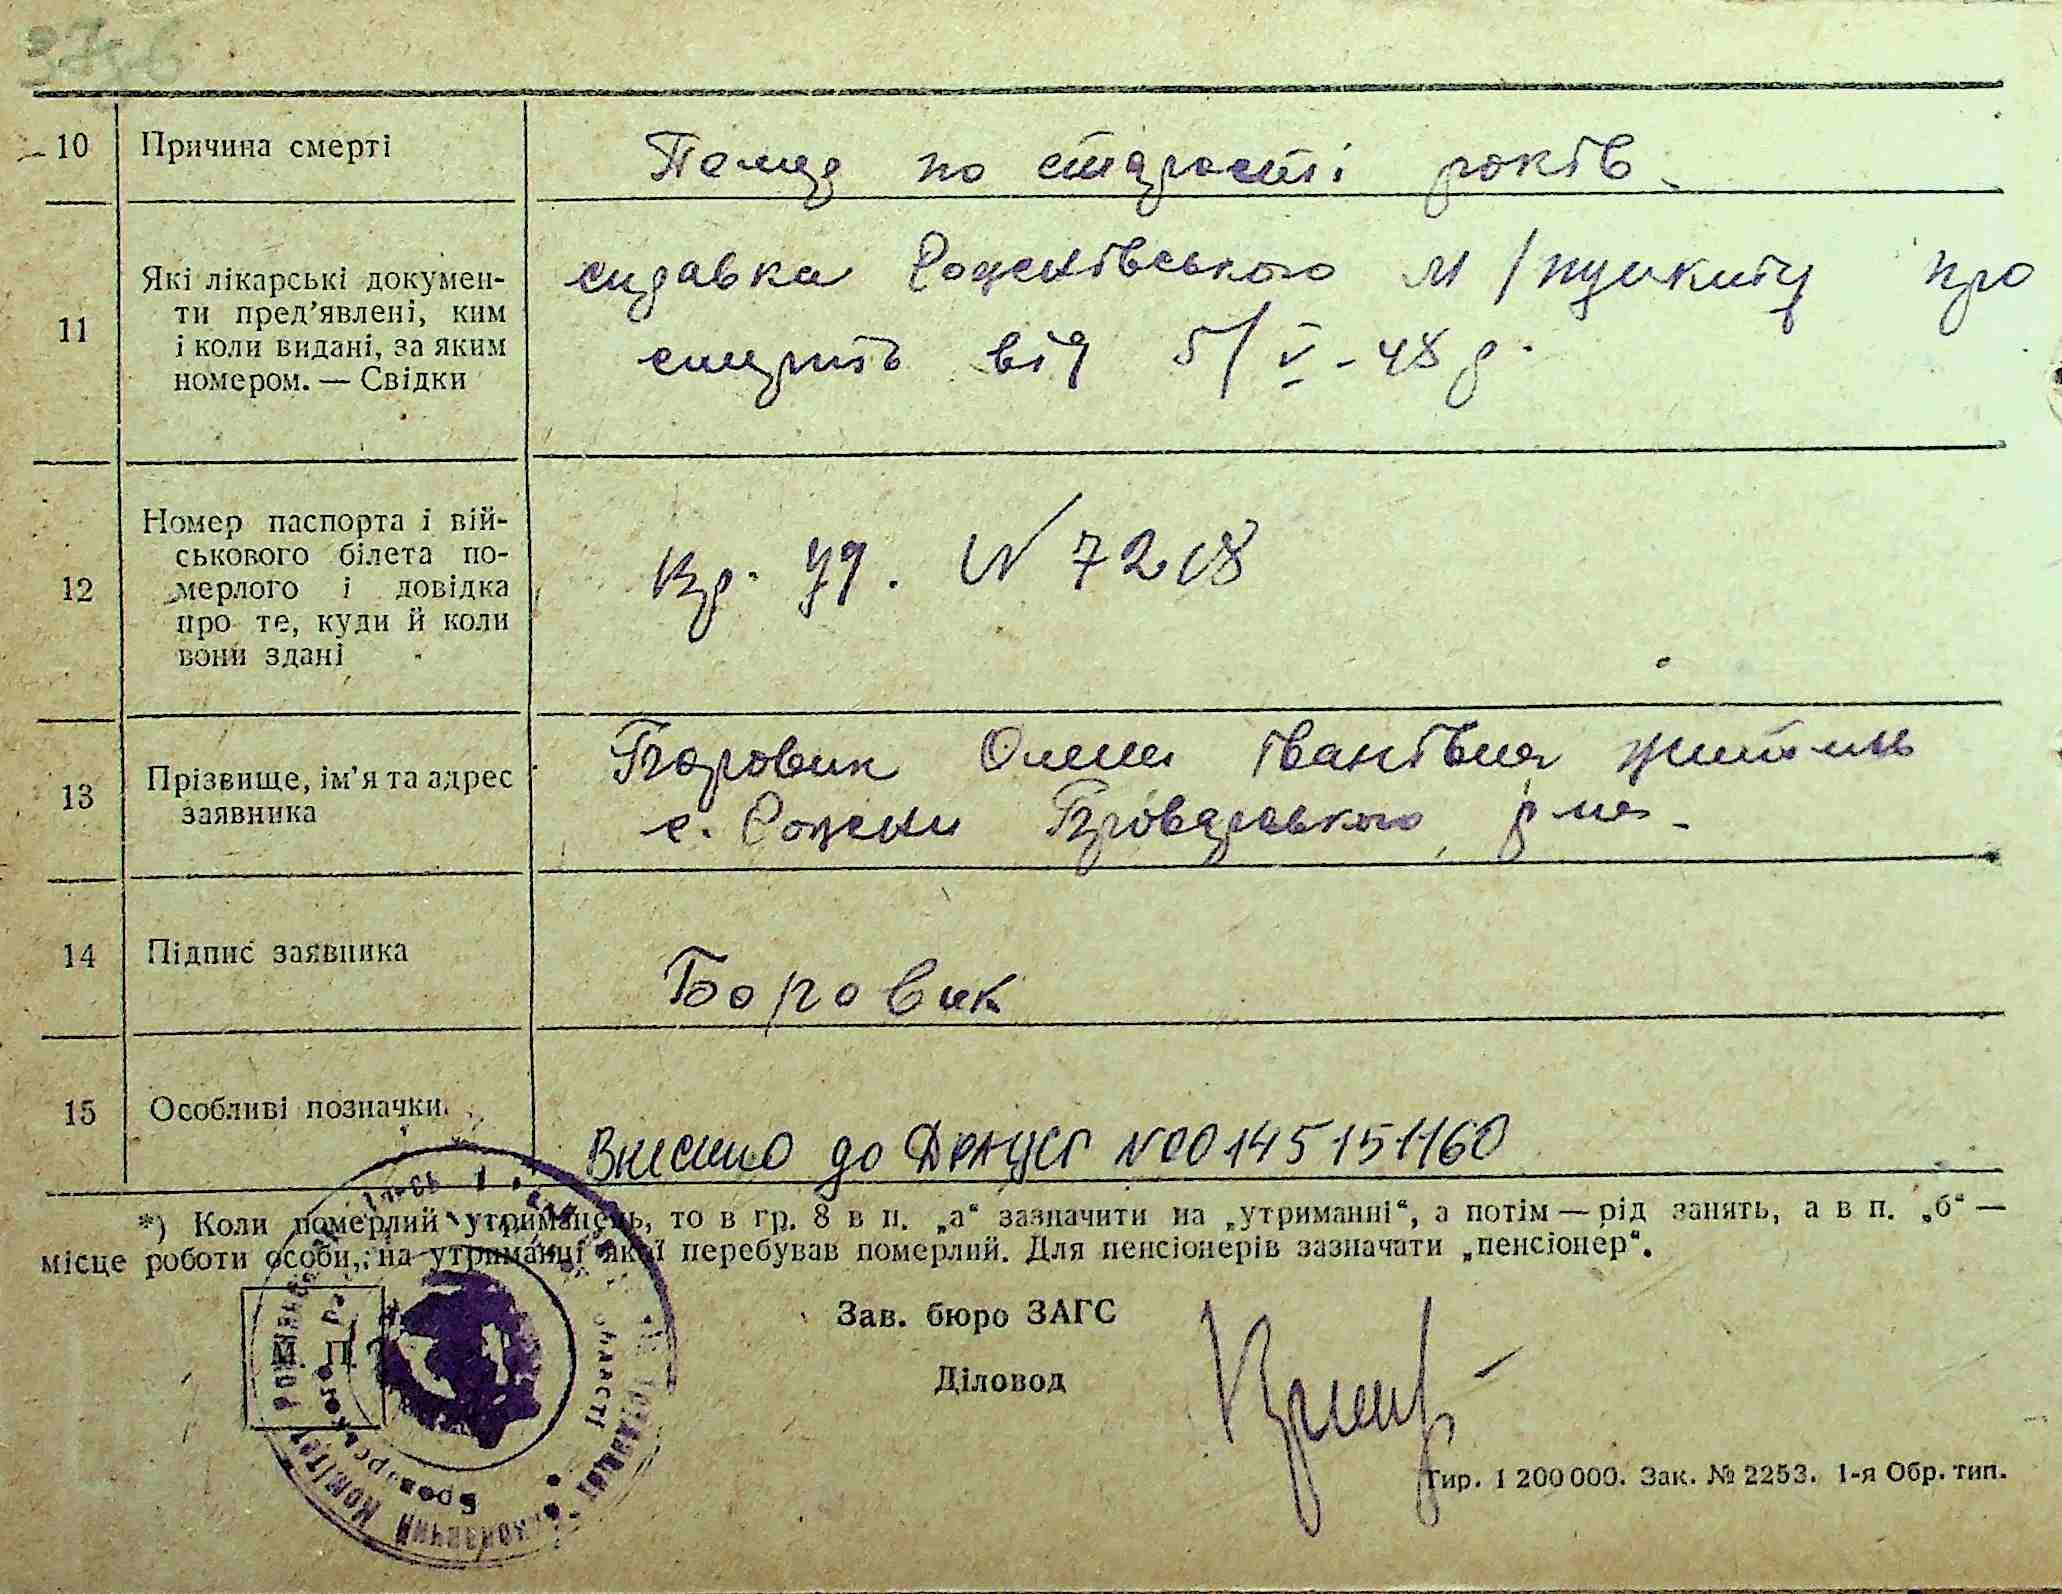 10 Причина смерті
по старості років.
11 Які лікарські докумен-
ти пред'явлені, ким
і коли видані, за яким
номером. — Свідки
справка Рожевського м/пункту про
смерть від 5/V-48 р.
12 Номер паспорта і вій-
ськового білета по-
мерлого і довідка
про те, куди й коли
вони здані
N 7218
13 Прізвище, ім'я та адрес
заявника
Боровик Іванівна житель
с. Броварського р-на.
14 Підпис заявника
Боровик
15 Особливі позначки.
Внесено до ДРАЦСГ N00145151160
*) Коли померлий утриманець, то в гр. 8 в п. „а“ зазначити на „утриманні“, а потім — рід занять, а в п. „б“ —
місце роботи особи, на утриманці якої перебував померлий. Для пенсіонерів зазначати „пенсіонер“.
Зав. бюро ЗАГС
М. П.
Діловод
Тир. 1 200 000. Зак. № 2253. 1-я Обр. тип.